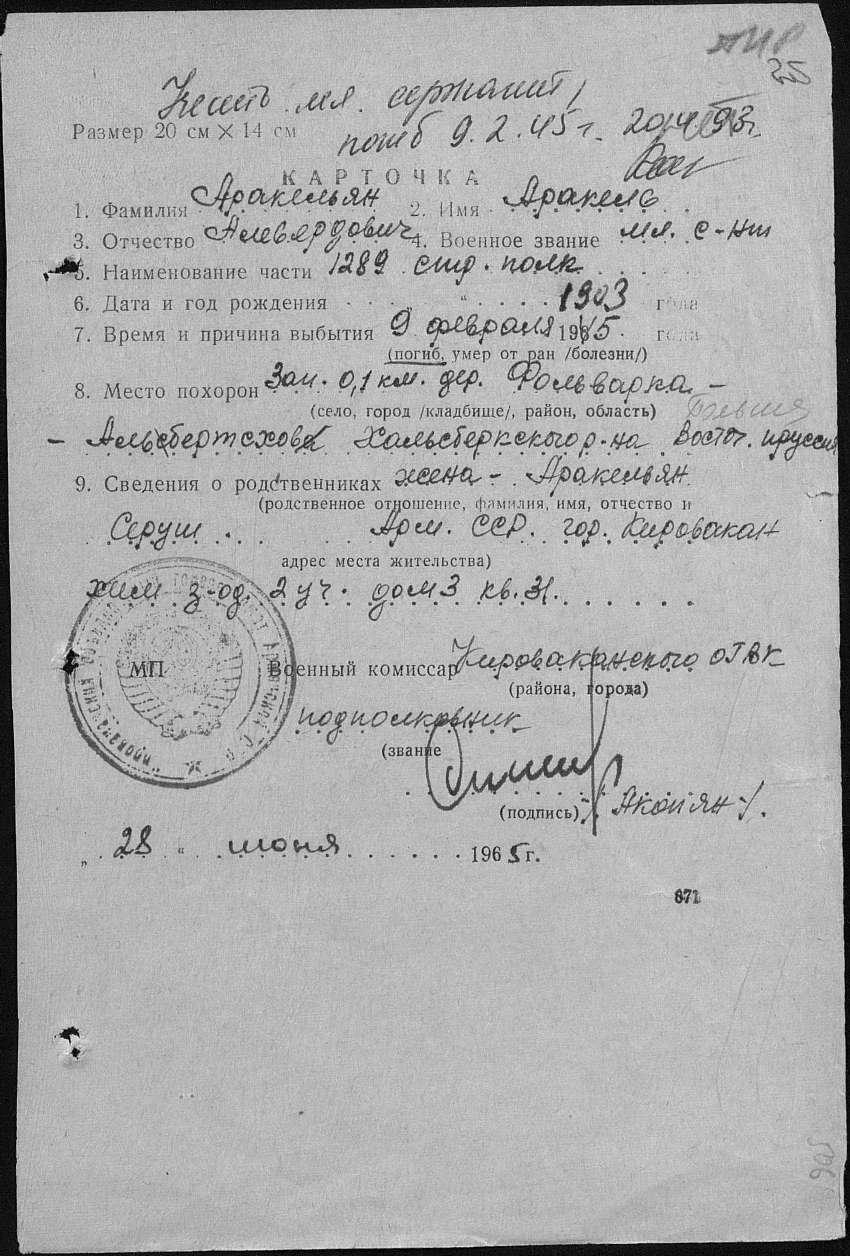 35
мл. сержант
Размер 20 см × 14 см
погиб 9.2.45 г.
КАРТОЧКА
1. Фамилия Аракельян 2. Имя Аракель
3. Отчество Алвердович 4. Военное звание мл. с-нт
5. Наименование части 1289 стр. полк
6. Дата и год рождения „ “ 1903 года
7. Время и причина выбытия 9 февраля 1945 года
(погиб, умер от ран /болезни/)
8. Место похорон Зап. 0,1 км. дер. Фольварка –
(село, город /кладбище/, район, область) Польша
– Альбертсхов Хальсберкского р-на Восточ. пруссия
9. Сведения о родственниках жена – Аракельян
(родственное отношение, фамилия, имя, отчество и
Серуш Арм. ССР. гор. Кировакан
адрес места жительства)
хим з-од. 2 уч. дом 3 кв. 31.
МП Военный комиссар Кироваканского ОГВК
(района, города)
подполковник
(звание
(подпись) /Акопян/.
„ 28 “ июня 1965 г.
871